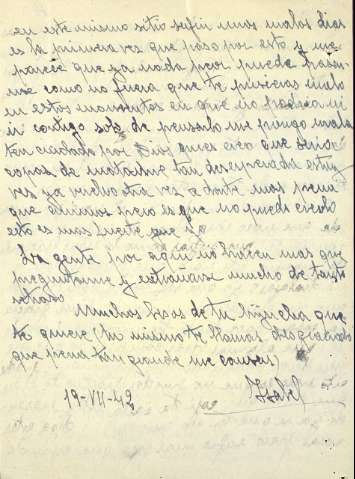 en este mismo sitio sufrí unos malos días
es la primera vez que paso por esto y me
parece que ya nada peor puede pasar
me como no fuera que te pusieras malo
en estos momentos en que no podría ni
ir contigo solo de pensarlo me pongo mala
ten cuidado por Dios pues creo que sería
capaz de matarme tan desesperada estoy
ves ya vuelvo otra vez a darte mas pena
que ánimos pero es que no puedo creelo
esto es mas fuerte que
La gente por aquí no hacen mas que
preguntarme y extrañarse mucho de tanto
retraso
Muchos besos de tu que
te quiere (tu mismo te llamas desgraciado
que pena tan grande me causas)
19-VII-42
Isabel